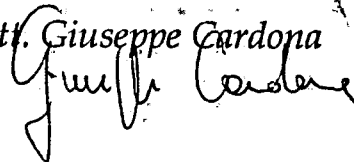 tt. Giuseppe Cardona
Giuseppe Cardona